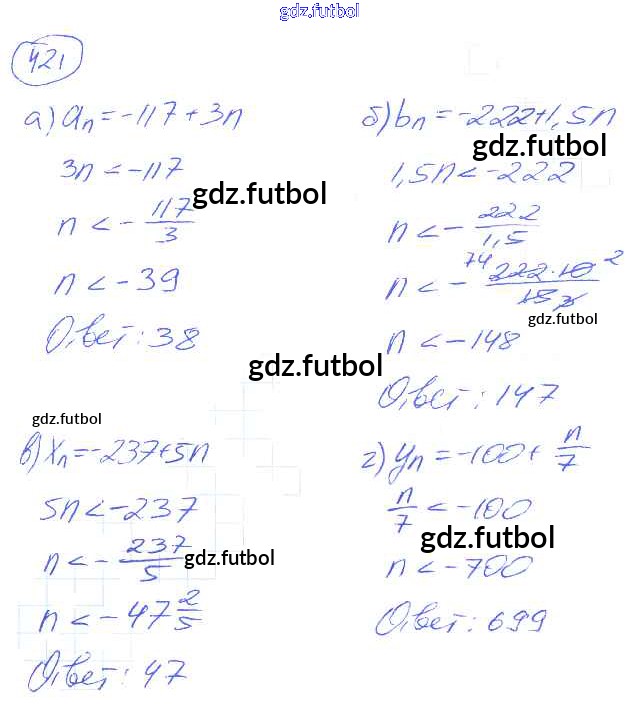 gdz.futbol
421
а) aₙ = -117 + 3n
3n < -117
gdz.futbol
n < - 117/3
n < -39
Ответ: 38
б) bₙ = -222 + 1,5n
gdz.futbol
1,5n < -222
n < - 222/1,5
n < - 74 222·10 2 / 15 3
gdz.futbol
n < -148
gdz.futbol
Ответ: 147
gdz.futbol
в) xₙ = -237 + 5n
5n < -237
n < - 237/5
gdz.futbol
n < -47 2/5
Ответ: 47
г) yₙ = -100 + n/7
n/7 < -100
gdz.futbol
n < -700
Ответ: 699